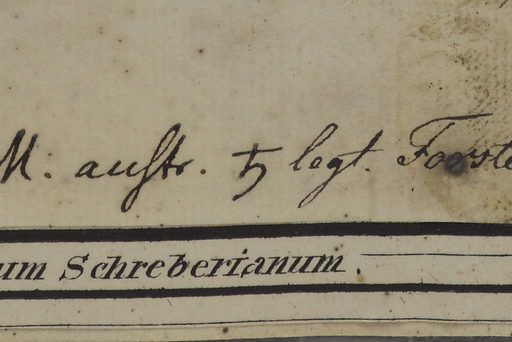 M. austr. ♄ legt. Forste
um Schreberianum.